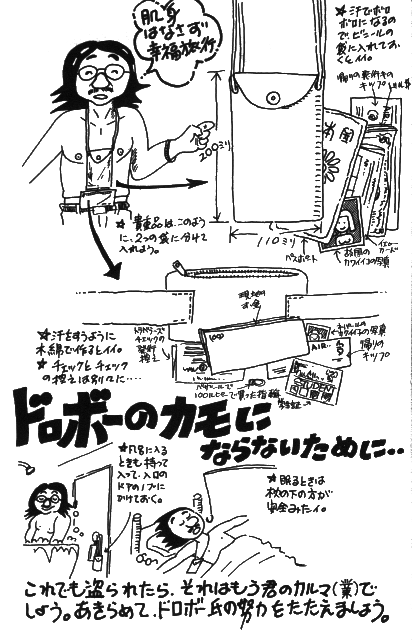 肌身
はなさず
幸福旅行
★汗でボロ
ボロになるの
で、ビニールの
袋に入れてお
くとイイ。
200ミリ
110ミリ
パスポート
★貴重品は、このよう
に、2つの袋に分けて
入れよう。
イエロー
カード
故国の
カワイイ子の写真
現地の
お金
トラベラーズ
チェックの
控え
帰りの
キップ
STUDENT
学生証
★汗をすうように
木綿で作るとイイ。
★チェックとチェック
の控えは別々に‥‥
ドロボーのカモに
ならないために‥
★風呂に入る
ときも持って
入って、入口の
ドアのノブに
かけておく。
★眠るときは
枕の下の方が
安全みたイ。
これでも盗られたら、それはもう君のカルマ(業)で
しょう。あきらめて、ドロボー氏の努力をたたえましょう。